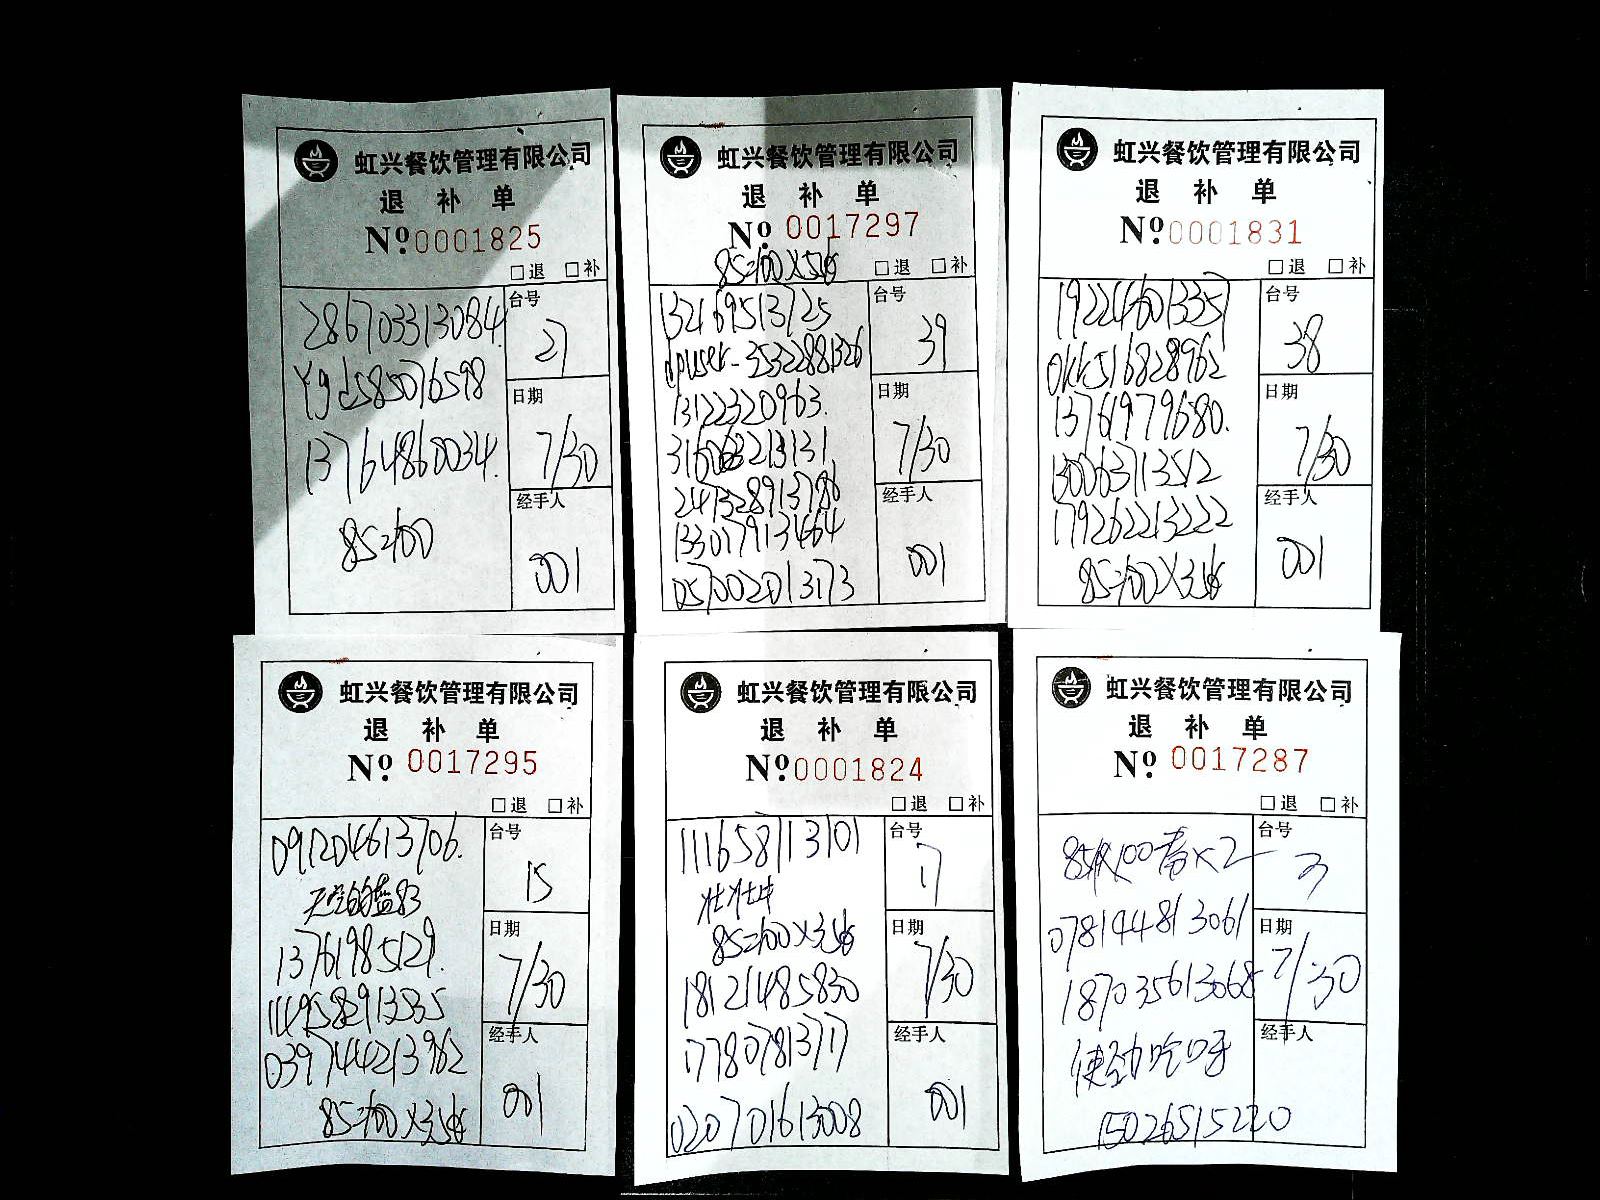 虹兴餐饮管理有限公司
退 补 单
Nº:0001825
□退 □补
286703313084.
台号
21
Ygd585076598
日期
13764860034.
7/30
经手人
85=100
001
虹兴餐饮管理有限公司
退 补 单
Nº: 0017297
□退 □补
132169513725
台号
39
dpuser-3532881326
日期
13122320963.
7/30
241328913786
经手人
133017913464
001
057002013173
虹兴餐饮管理有限公司
退 补 单
Nº:0001831
□退 □补
台号
38
okk516828962
日期
13761979680.
7/30
130063713512
经手人
179262213222
001
虹兴餐饮管理有限公司
退 补 单
Nº: 0017295
□退 □补
091204613706.
台号
15
天空的蓝83
日期
13761985129.
7/30
114958913535
经手人
039744213962
001
虹兴餐饮管理有限公司
退 补 单
Nº:0001824
□退 □补
111658113101
台号
17
壮壮牛
日期
18121485830
7/30
177807813717
经手人
020701613008
001
虹兴餐饮管理有限公司
退 补 单
Nº: 0017287
□退 □补
台号
3
078144813061
日期
187035613068
7/30
经手人
使劲吃呀
15026515220